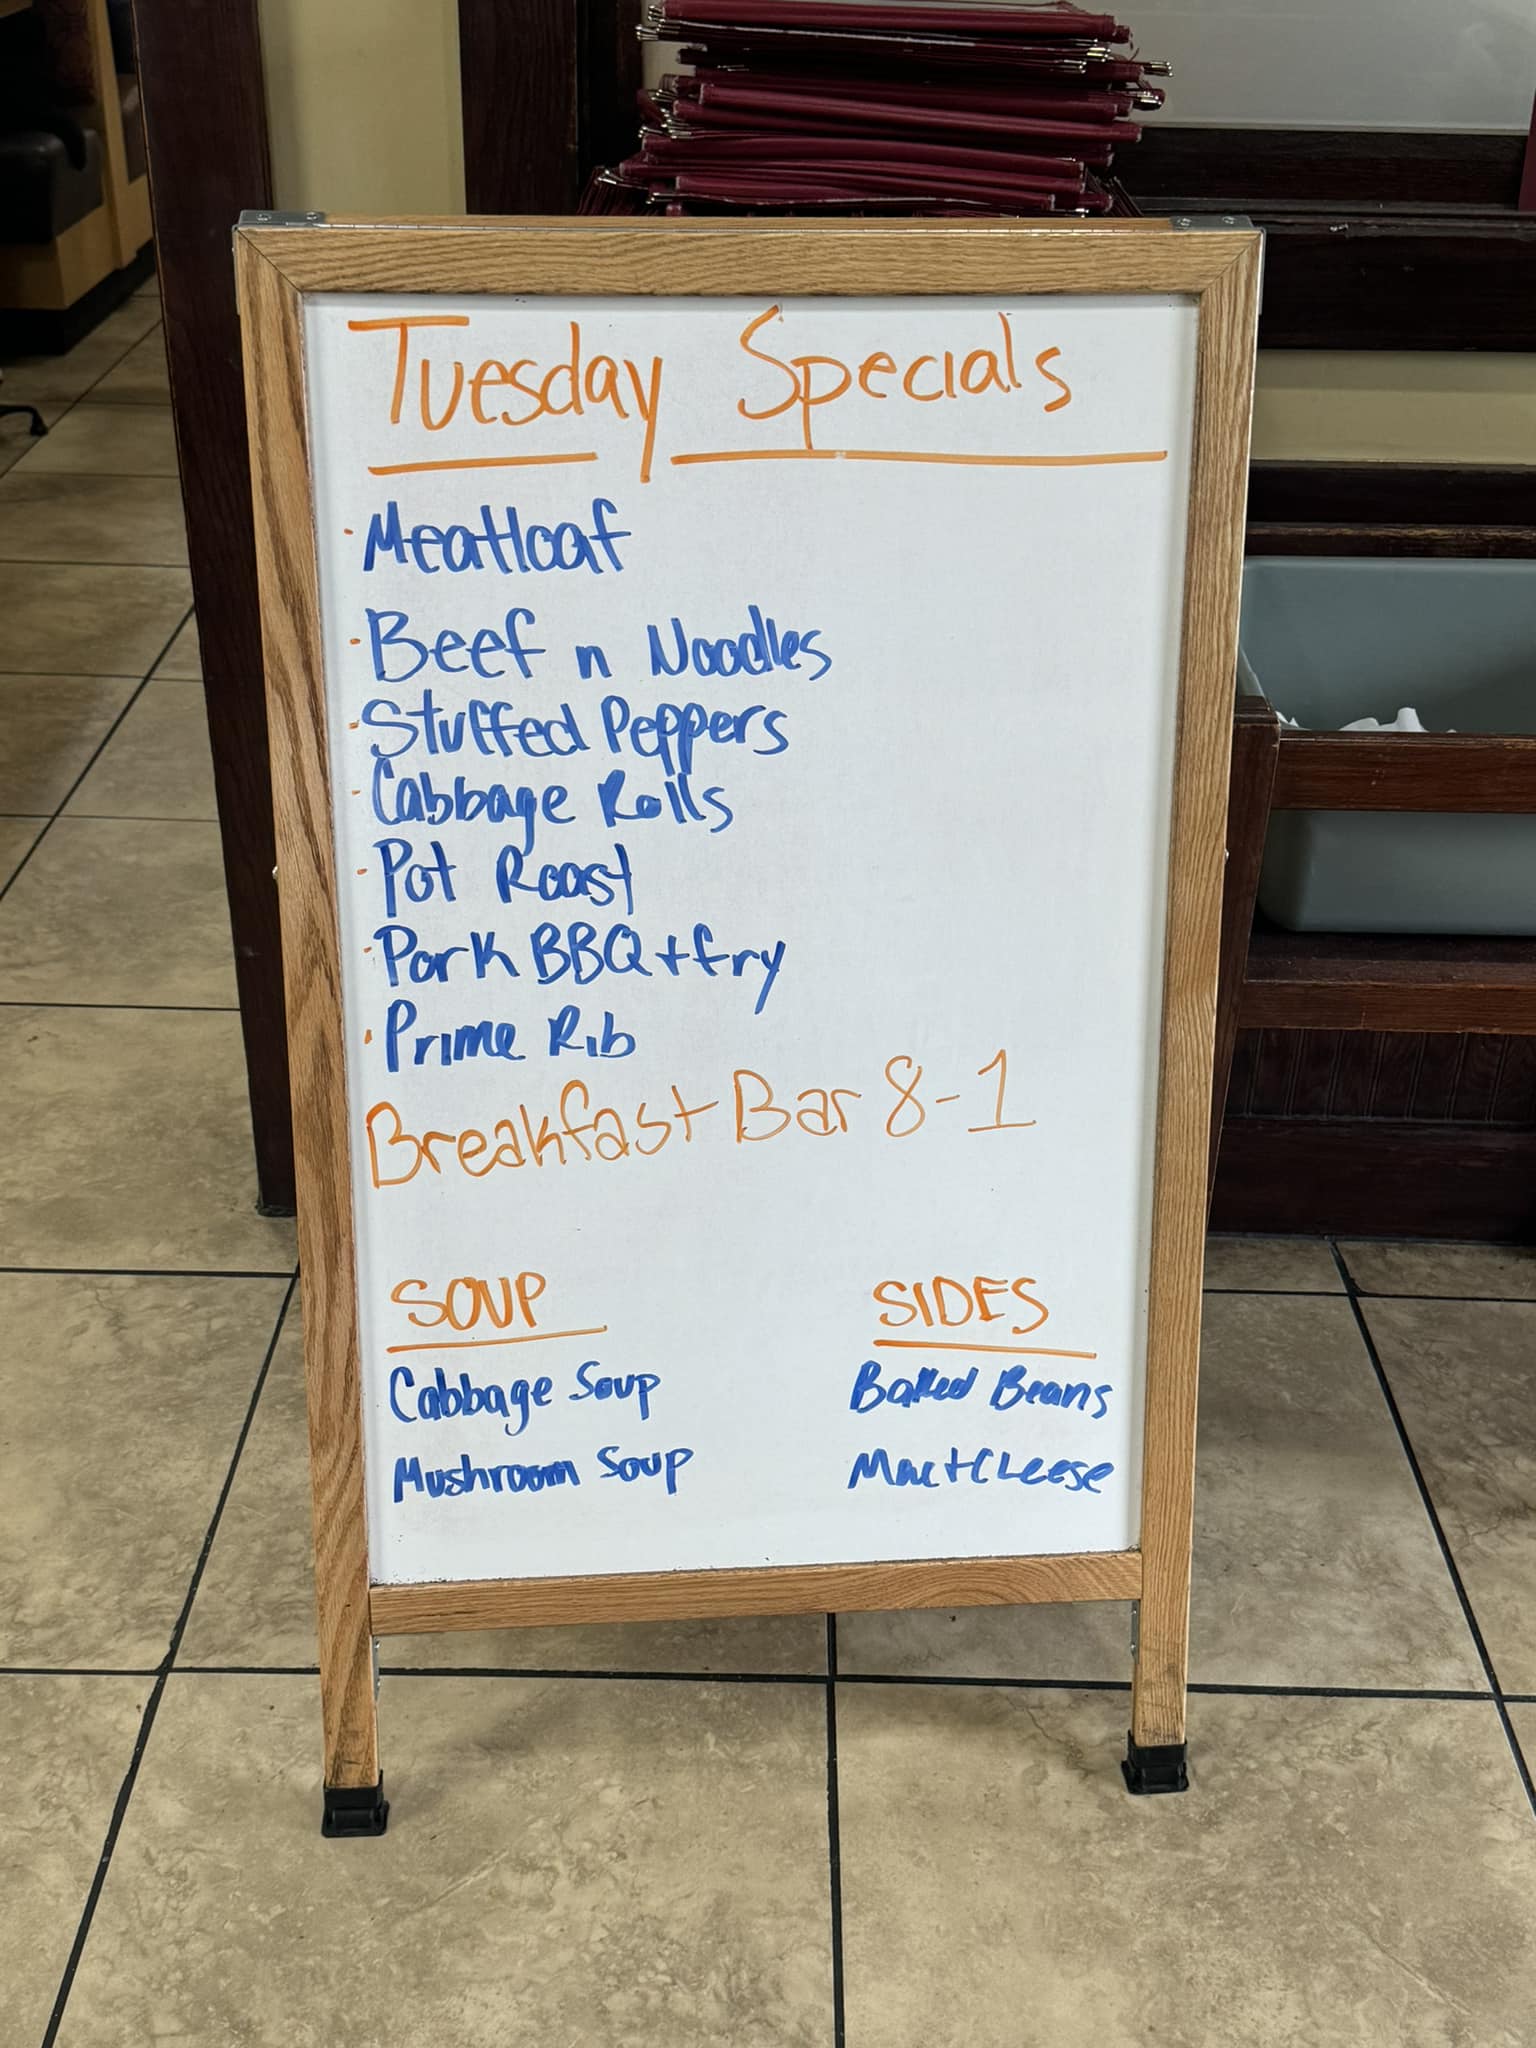 Tuesday Specials
· Meatloaf
· Beef n Noodles
· Stuffed Peppers
· Cabbage Rolls
· Pot Roast
· Pork BBQ + fry
· Prime Rib
Breakfast Bar 8-1
SOUP
Cabbage Soup
Mushroom Soup
SIDES
Baked Beans
Mac + Cheese